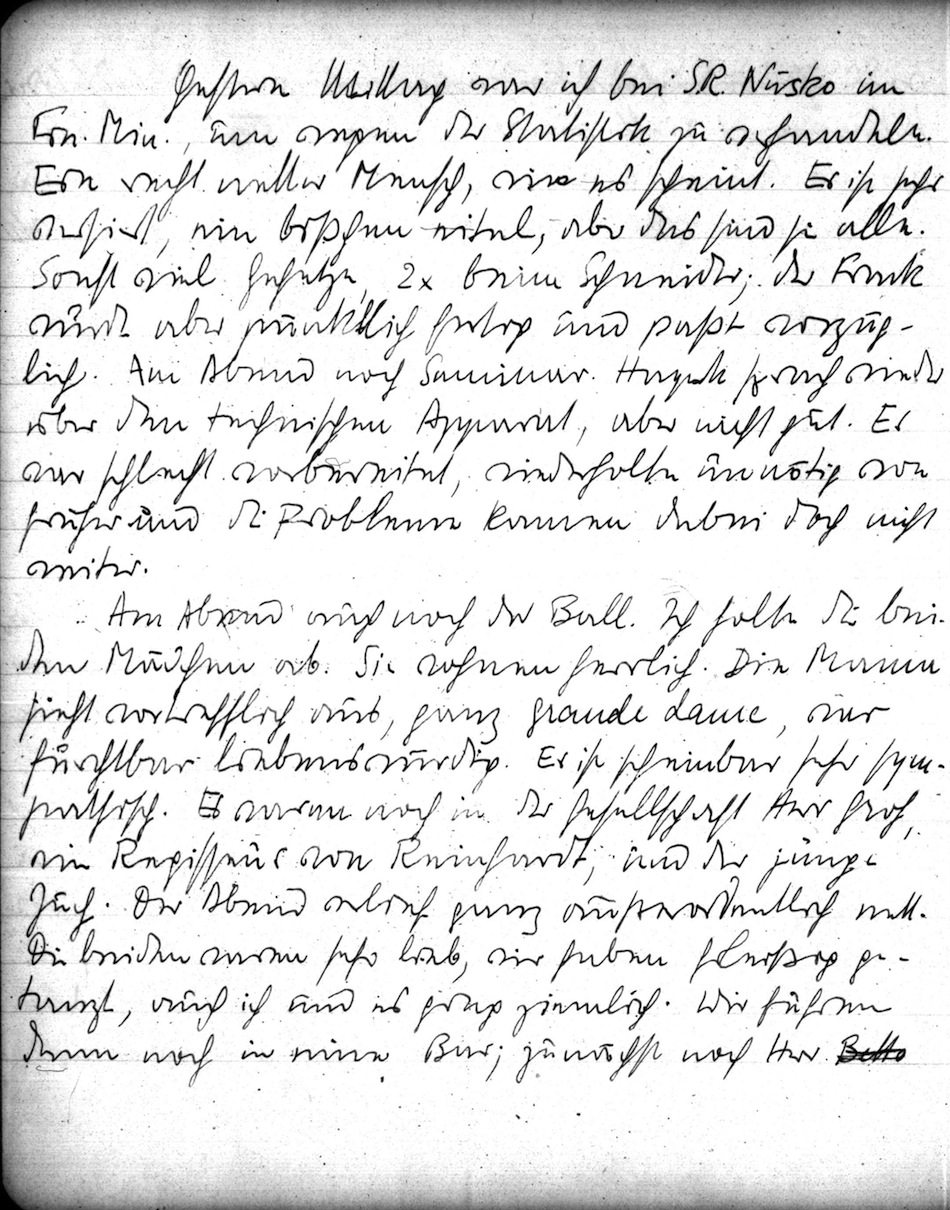 Gestern Mittag war ich bei S.R. Nusko im
Fin. Min., um wegen der Statistik zu verhandeln.
Ein recht netter Mensch, wie es scheint. Er ist sehr
versiert, ein bißchen eitel, aber das sind ja alle.
Sonst viel Gehetze, 2x beim Schneider; der Frack
wurde aber pünktlich fertig und paßt vorzüg-
lich. Am Abend noch Seminar. Hayek sprach wieder
über den technischen Apparat, aber nicht gut. Er
war schlecht vorbereitet, wiederholte unnötig von
früher und die Probleme kamen dabei doch nicht
weiter.
Am Abend auch noch der Ball. Ich holte die bei-
den Mädchen ab. Sie wohnen herrlich. Die Mama
sieht vortrefflich aus, ganz grande dame, war
furchtbar liebenswürdig. Er ist scheinbar sehr sym-
pathisch. Es waren noch in der Gesellschaft Herr
ein Regisseur von Reinhardt, und der junge
Der Abend verlief ganz außerordentlich nett.
Die beiden waren sehr lieb, wir haben fleißig ge-
tanzt, auch ich und es ging ziemlich. Wir fuhren
dann noch in eine Bar; zunächst noch Herr